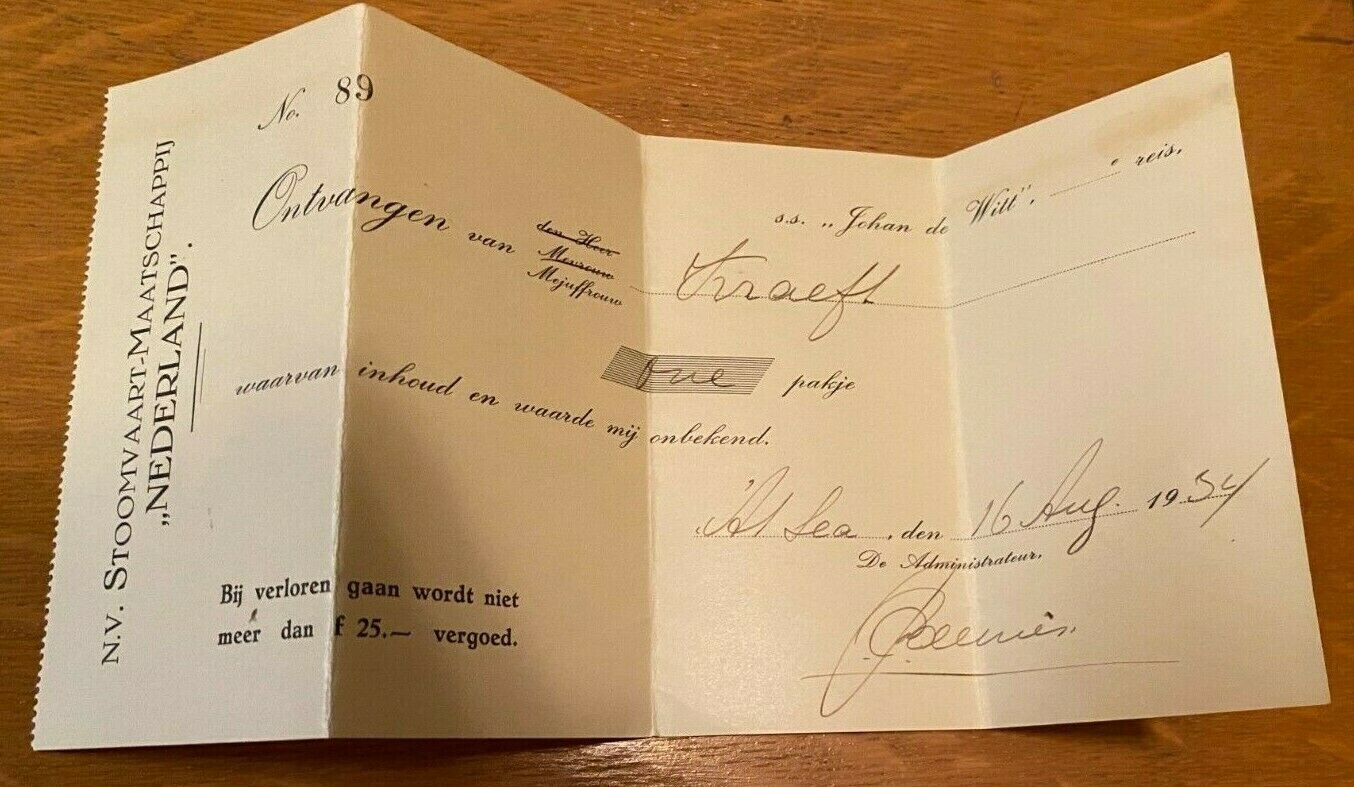 N.V. STOOMVAART-MAATSCHAPPIJ
„NEDERLAND".
No. 89
s.s. „Johan de Witt", e reis.
Ontvangen van
den Heer
Mevrouw
Mejuffrouw
Kraeft
One pakje
waarvan inhoud en waarde mij onbekend.
At Sea, den 16 Aug. 1934
De Administrateur,
Bij verloren gaan wordt niet
meer dan f 25.— vergoed.